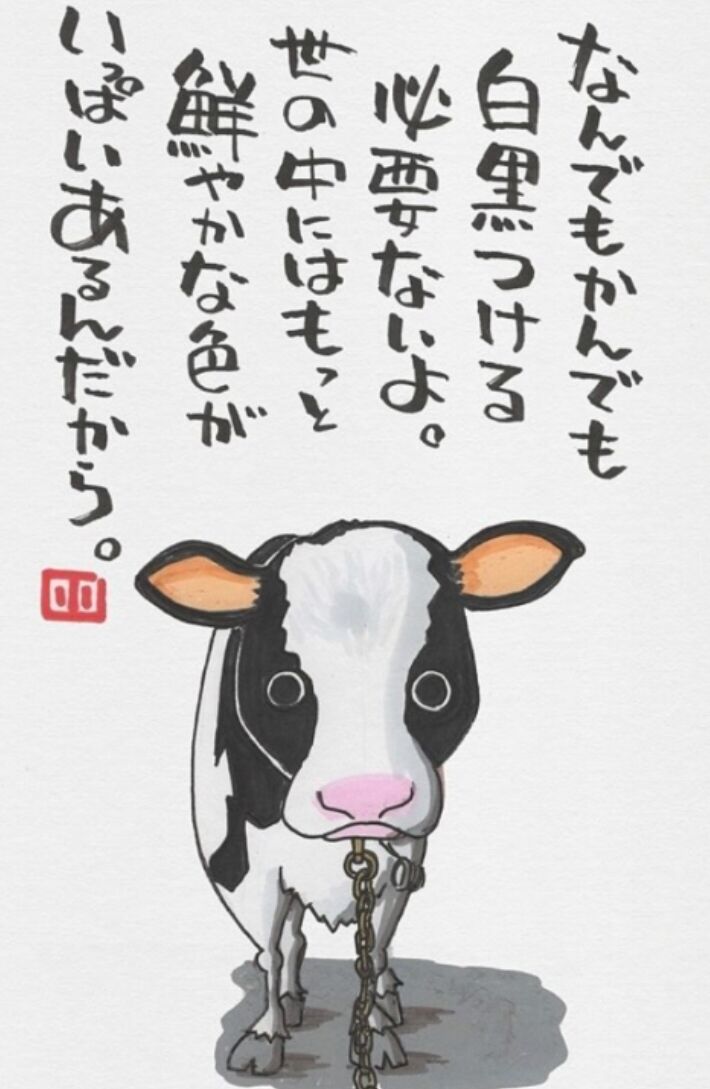 なんでもかんでも
白黒つける
必要ないよ。
世の中にはもっと
鮮やかな色が
いっぱいあるんだから。